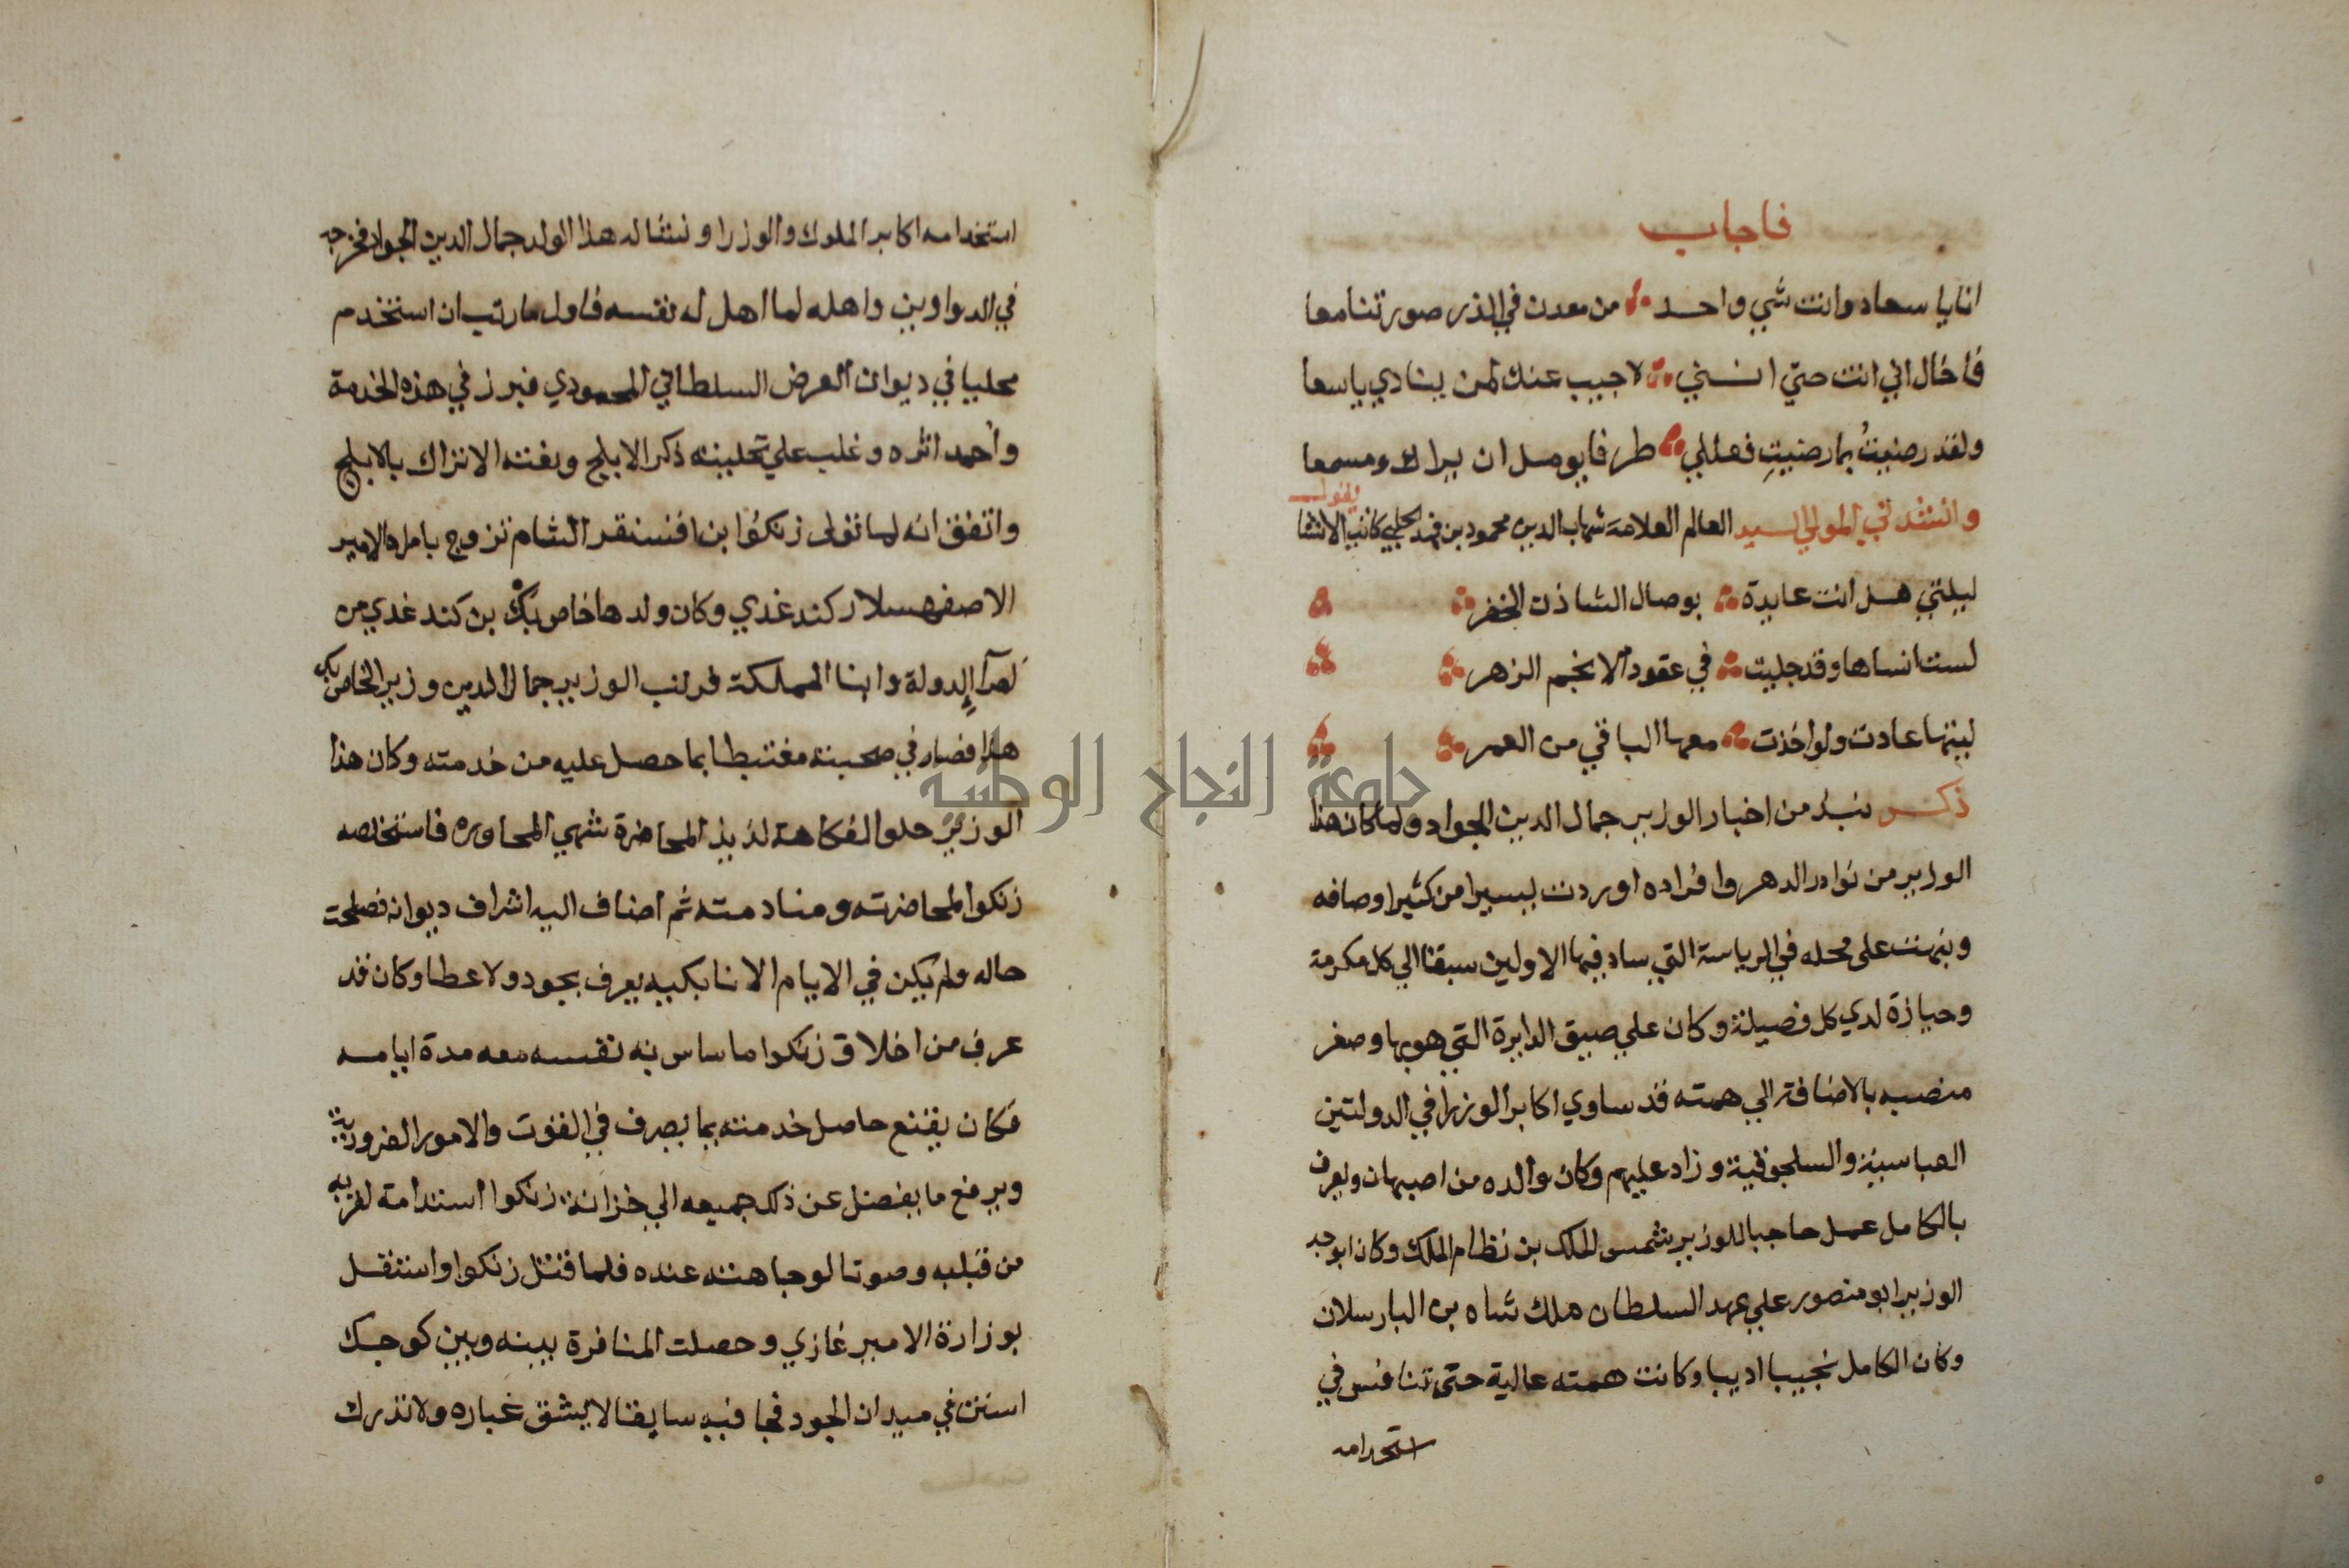 فاجاب
انا يا سعاد وانت شي واحد من معدن في الذر صورتنا معا
فأخال اني انت حتي انني لاجيب عنك لمن ينادي يا سعا
ولقد رضيتُ بما رضيتِ فعللي طرفا يومل ان يراك ومسمعا
وانشدني المولي السيد العالم العلامة شهاب الدين محمود بن فهد الحلبي كاتب الانشا
يقول
ليلتي هل انت عايدة بوصال الشاذن الخفر
لست انساها وقد جليت في عقود الانجم الزهر
ليتها عادت ولو اخذت معها الباقي من العمر
ذكر نبذ من اخبار الوزير جمال الدين الجواد ولما كان هذا
الوزير من نوادر الدهر وافراده اوردت يسيرا من كثير اوصافه
ونبهت على محله في الرياسة التي ساد فيها الاولين سبقا الي كل مكرمة
وحيازة لدي كل فضيلة وكان علي ضيق الدايرة التي هو بها وصغر
منصبه بالاضافة الي همته قد ساوي اكابر الوزرا في الدولتين
العباسية والسلجوقية وزاد عليهم وكان والده من اصبهان ويعرف
بالكامل عمل حاجبا للوزير شمس الملك بن نظام الملك وكان ابو جد
الوزير ابو منصور علي عهد السلطان ملك شاه بن البارسلان
وكان الكامل نجيبا اديبا وكانت همته عالية حتى تنافس في
استخدامه
استخدامه اكابر الملوك والوزرا ونشا له هذا الولد جمال الدين الجواد فخرجه
في الدواوين واهله لما اهل له نفسه فاول ما رتب ان استخدم
محليا في ديوان العرض السلطاني المحمودي فبرز في هذه الخدمة
وأحمد اثره وغلب علي تحليته ذكر الابلج ونعته الاتراك بالابلج
واتفق انه لما تولى زنكوا بن اقسنقر الشام تزوج بامراة الامير
الاصفهسلار كندغدي وكان ولدها خاص بك بن كندغدي من
امرآ الدولة وابنا المملكة فرتب الوزير جمال الدين وزير الخاص بك
هذا فصار في صحبته مغتبطا بما حصل عليه من خدمته وكان هذا
الوزير حلو الفكاهة لذيذ المحاضرة شهي المحاوره فاستخلصه
زنكوا لمحاضرته ومنادمته ثم اضاف اليه اشراف ديوانه فصلحت
حاله ولم يكن في الايام الاتابكيه يعرف بجود ولا عطا وكان قد
عرف من اخلاق زنكوا ما ساس به نفسه معه مدة ايامه
فكان يقنع حاصل خدمته بما يصرف في القوت والامور الضرورية
ويرفع ما يفضل عن ذلك جميعه الي خزانة زنكوا استدامة لقربه
من قلبه وصوتا لوجاهته عنده فلما قتل زنكوا واستقل
بوزارة الامير غازي وحصلت المنافرة بينه وبين كوجك
استن في ميدان الجود فجا فيه سابقا لا يشق غباره ولا تدرك
جامعة النجاح الوطنية